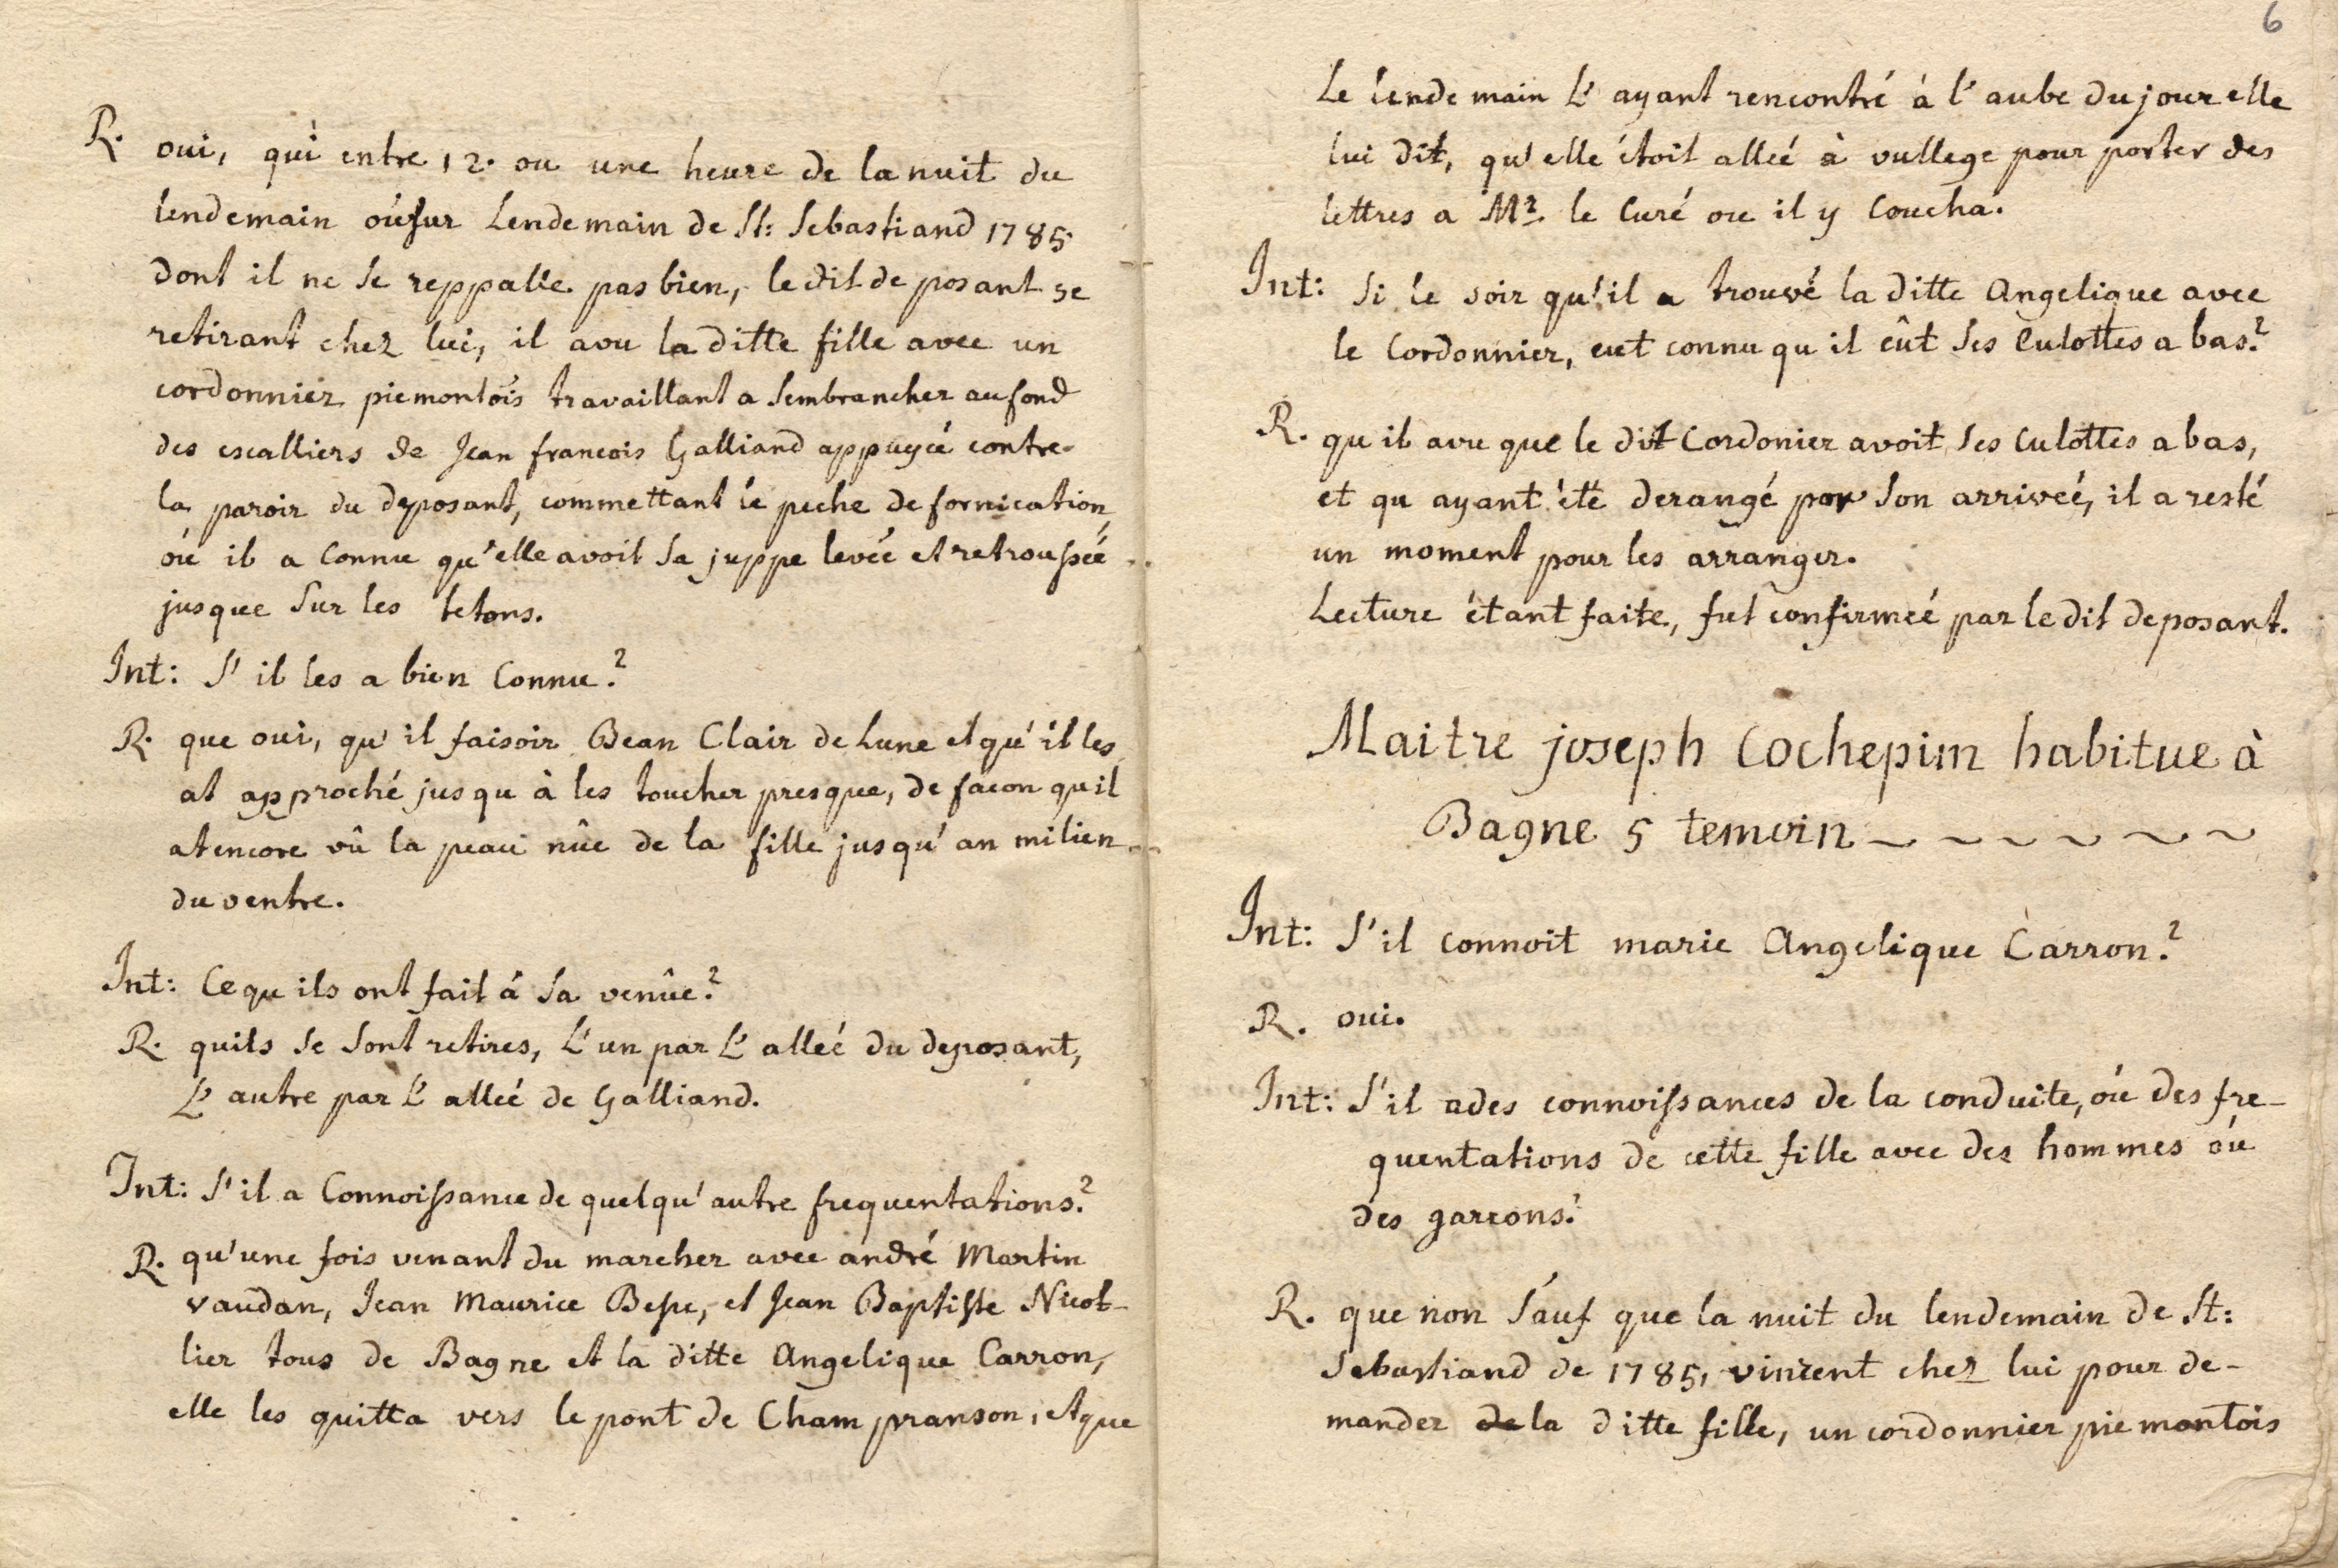 R. oui, qui entre 12. ou une heure de la nuit du
lendemain oú sur Lendemain de St: Sebastiand 1785
dont il ne se reppalle pas bien, le dit deposant se
retirant chez lui, il a vu la ditte fille avec un
cordonnier piemontois travaillant a Sembrancher au fond
des escalliers de Jean francois Galliand appuyeé contre
la paroir du deposant, commettant le peche de fornication
oú il a Connu qu'elle avoit sa juppe levée et retrousseé
jusque sur les tetons.
Int: S'il les a bien Connu?
R. que oui, qu'il faisoir Beau Clair de Lune et qu'il les
at approché jusqu à les toucher presque, de facon quil
at encore vû la peau nûe de la fille jusqu'au milieu
du ventre.
Int: Cequ ils ont fait á sa venûe?
R. quils se sont retires, L'un par L'alleé du deposant,
L'autre par L'alleé de Galliand.
Int: S'il a Connoissance de quelqu'autre frequentations?
R. qu'une fois venant du marcher avec andré Martin
vaudan, Jean Maurice Besse, et Jean Baptiste Nicol-
lier tous de Bagne et la ditte Angelique Carron,
elle les quitta vers le pont de Champranson, et que
6
Le lendemain L'ayant rencontré à l'aube du jour elle
lui dit, qu'elle étoit alleé à vullege pour porter des
lettres a Mr. le Curé ou il y Coucha.
Int: Si le soir qu'il a trouvé la ditte Angelique avec
le Cordonnier, eut connu qu il eût ses Culottes a bas?
R. qu il a vu que le dit Cordonier avoit ses Culottes a bas,
et qu ayant été derangé par son arriveé, il a resté
un moment pour les arranger.
Lecture étant faite, fut confirmeé par le dit deposant.
Maitre joseph Cochepim habitue à
Bagne 5 temoin ~ ~ ~ ~ ~ ~
Int: S'il connoit marie Angelique Carron?
R. oui.
Int: S'il a des connoissances de la conduite, oú des fre-
quentations de cette fille avec des hommes oú
des garcons?
R. que non sauf que la nuit du lendemain de St:
Sebastiand de 1785, vinrent chez lui pour de-
mander de la ditte fille, un cordonnier piemontois